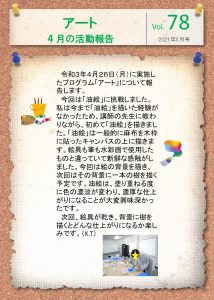 アート
４月の活動報告
Vol. 78
2021年5月号
令和3年4月26日（月）に実施し
たプログラム「アート」について報
告します。
今回は「油絵」に挑戦しました。
私は今まで「油絵」を描いた経験が
なかったため、講師の先生に教わ
りながら、初めて「油絵」を描きまし
た。「油絵」は一般的に麻布を木枠
に貼ったキャンバスの上に描きま
す。絵具も筆も水彩画で使用した
ものと違っていて新鮮な感触がし
ました。今回は絵の背景を描き、
次回はその背景に一本の樹を描く
予定です。油絵は、塗り重ねる度
に色の濃淡が変わり、濃厚な仕上
がりになることが大変興味深かっ
たです。
次回、絵具が乾き、背景に樹を
描くとどんな仕上がりになるか楽し
みです。（K.T）